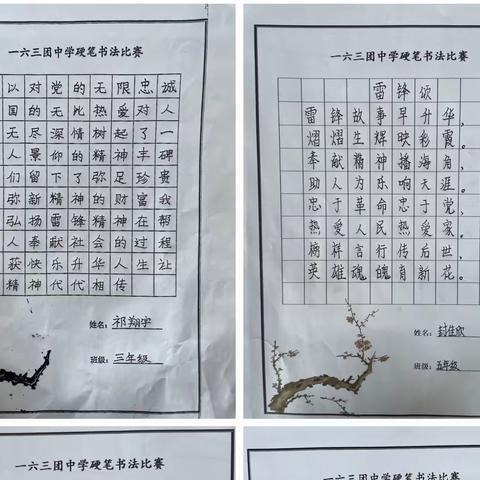 一六三团中学硬笔书法比赛
以对党的无限忠诚
国的无比热爱对人
无尽深情树起了一
人景仰的精神丰碑
们留下了弥足珍贵
弥新精神的财富我
弘扬雷锋精神在帮
人奉献社会的过程
获快乐升华人生让
精神代代相传
姓名：祁翔宇
班级：三年级
一六三团中学硬笔书法比赛
雷锋颂
雷锋故事早升华，
熠熠生辉映彩霞。
奉献精神播海角，
助人为乐响天涯。
忠于革命忠于党，
热爱人民热爱家。
榜样言行传后世，
英雄魂魄育新花。
姓名：封佳欣
班级：五年级
一六三团中学硬笔书法比赛
一六三团中学硬笔书法比赛